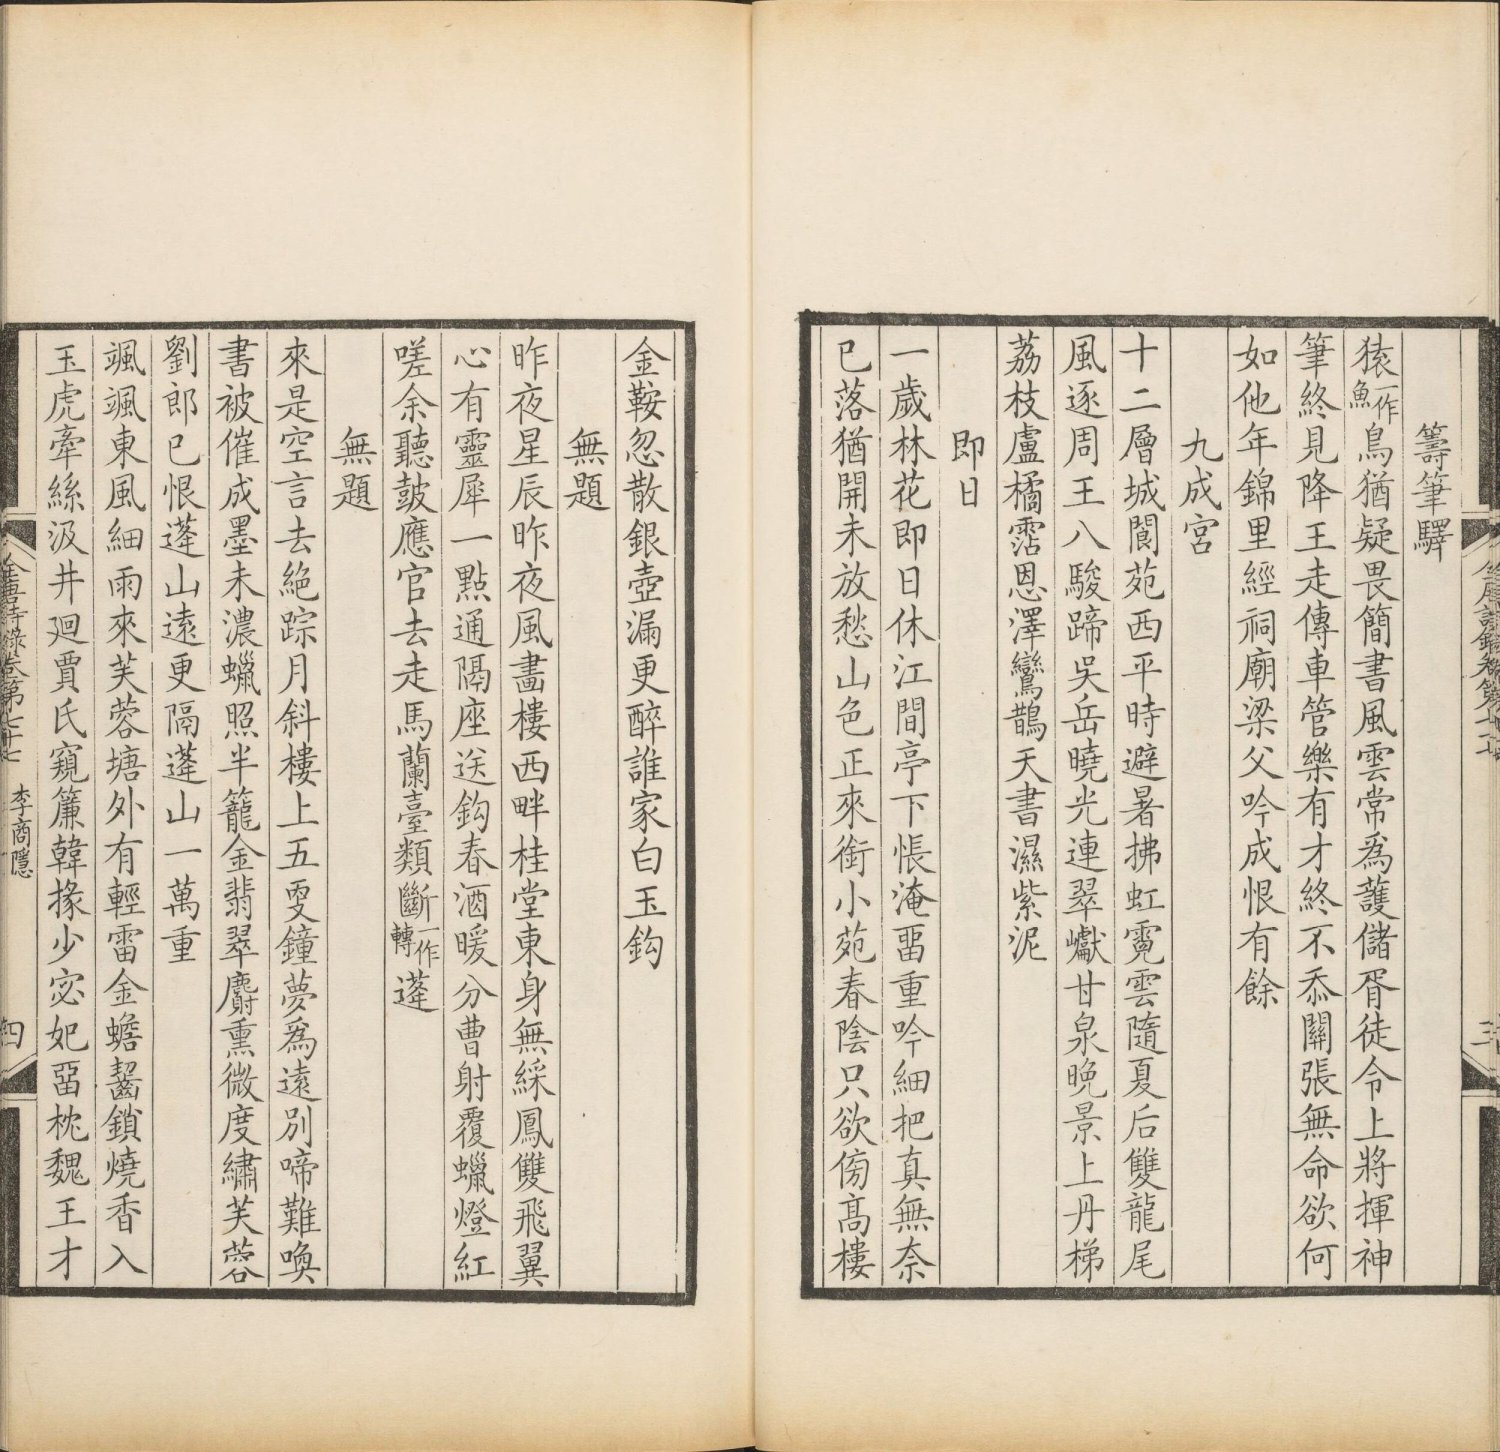 籌筆驛
猿一作魚鳥猶疑畏簡書風雲常爲護儲胥徒令上將揮神
筆終見降王走傳車管樂有才終不忝關張無命欲何
如他年錦里經祠廟梁父吟成恨有餘
九成宮
十二層城閬苑西平時避暑拂虹霓雲隨夏后雙龍尾
風逐周王八駿蹄吳岳曉光連翠巘甘泉晚景上丹梯
荔枝盧橘霑恩澤鸞鵲天書濕紫泥
即日
一歲林花即日休江間亭下悵淹畱重吟細把真無奈
已落猶開未放愁山色正來銜小苑春陰只欲傍高樓
金鞍忽散銀壺漏更醉誰家白玉鈎
無題
昨夜星辰昨夜風畵樓西畔桂堂東身無綵鳳雙飛翼
心有靈犀一點通隔座送鈎春酒暖分曹射覆蠟燈紅
嗟余聽鼓應官去走馬蘭臺類斷一作轉蓬
無題
來是空言去絶踪月斜樓上五更鐘夢爲遠別啼難喚
書被催成墨未濃蠟照半籠金翡翠麝熏微度繡芙蓉
劉郎已恨蓬山遠更隔蓬山一萬重
颯颯東風細雨來芙蓉塘外有輕雷金蟾齧鎖燒香入
玉虎牽絲汲井廻賈氏窺簾韓掾少宓妃畱枕魏王才
全唐詩錄卷第七十七 李商隱
四